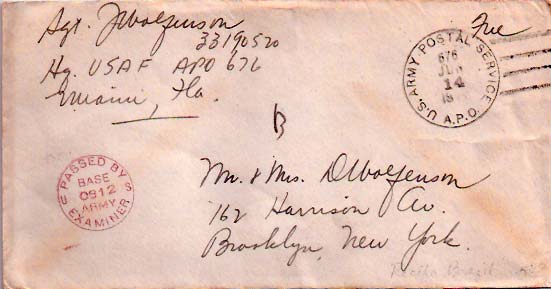 Sgt. J Wolfenson
33190520
Hq. USAF APO 676
Miami, Fla.
Free
U.S. ARMY POSTAL SERVICE
676
JUN
14
A.P.O.
B
PASSED BY
U S
BASE
0912
ARMY
EXAMINER
Mr. & Mrs. D Wolfenson
162 Harrison Av.
Brooklyn, New York.
Brazil